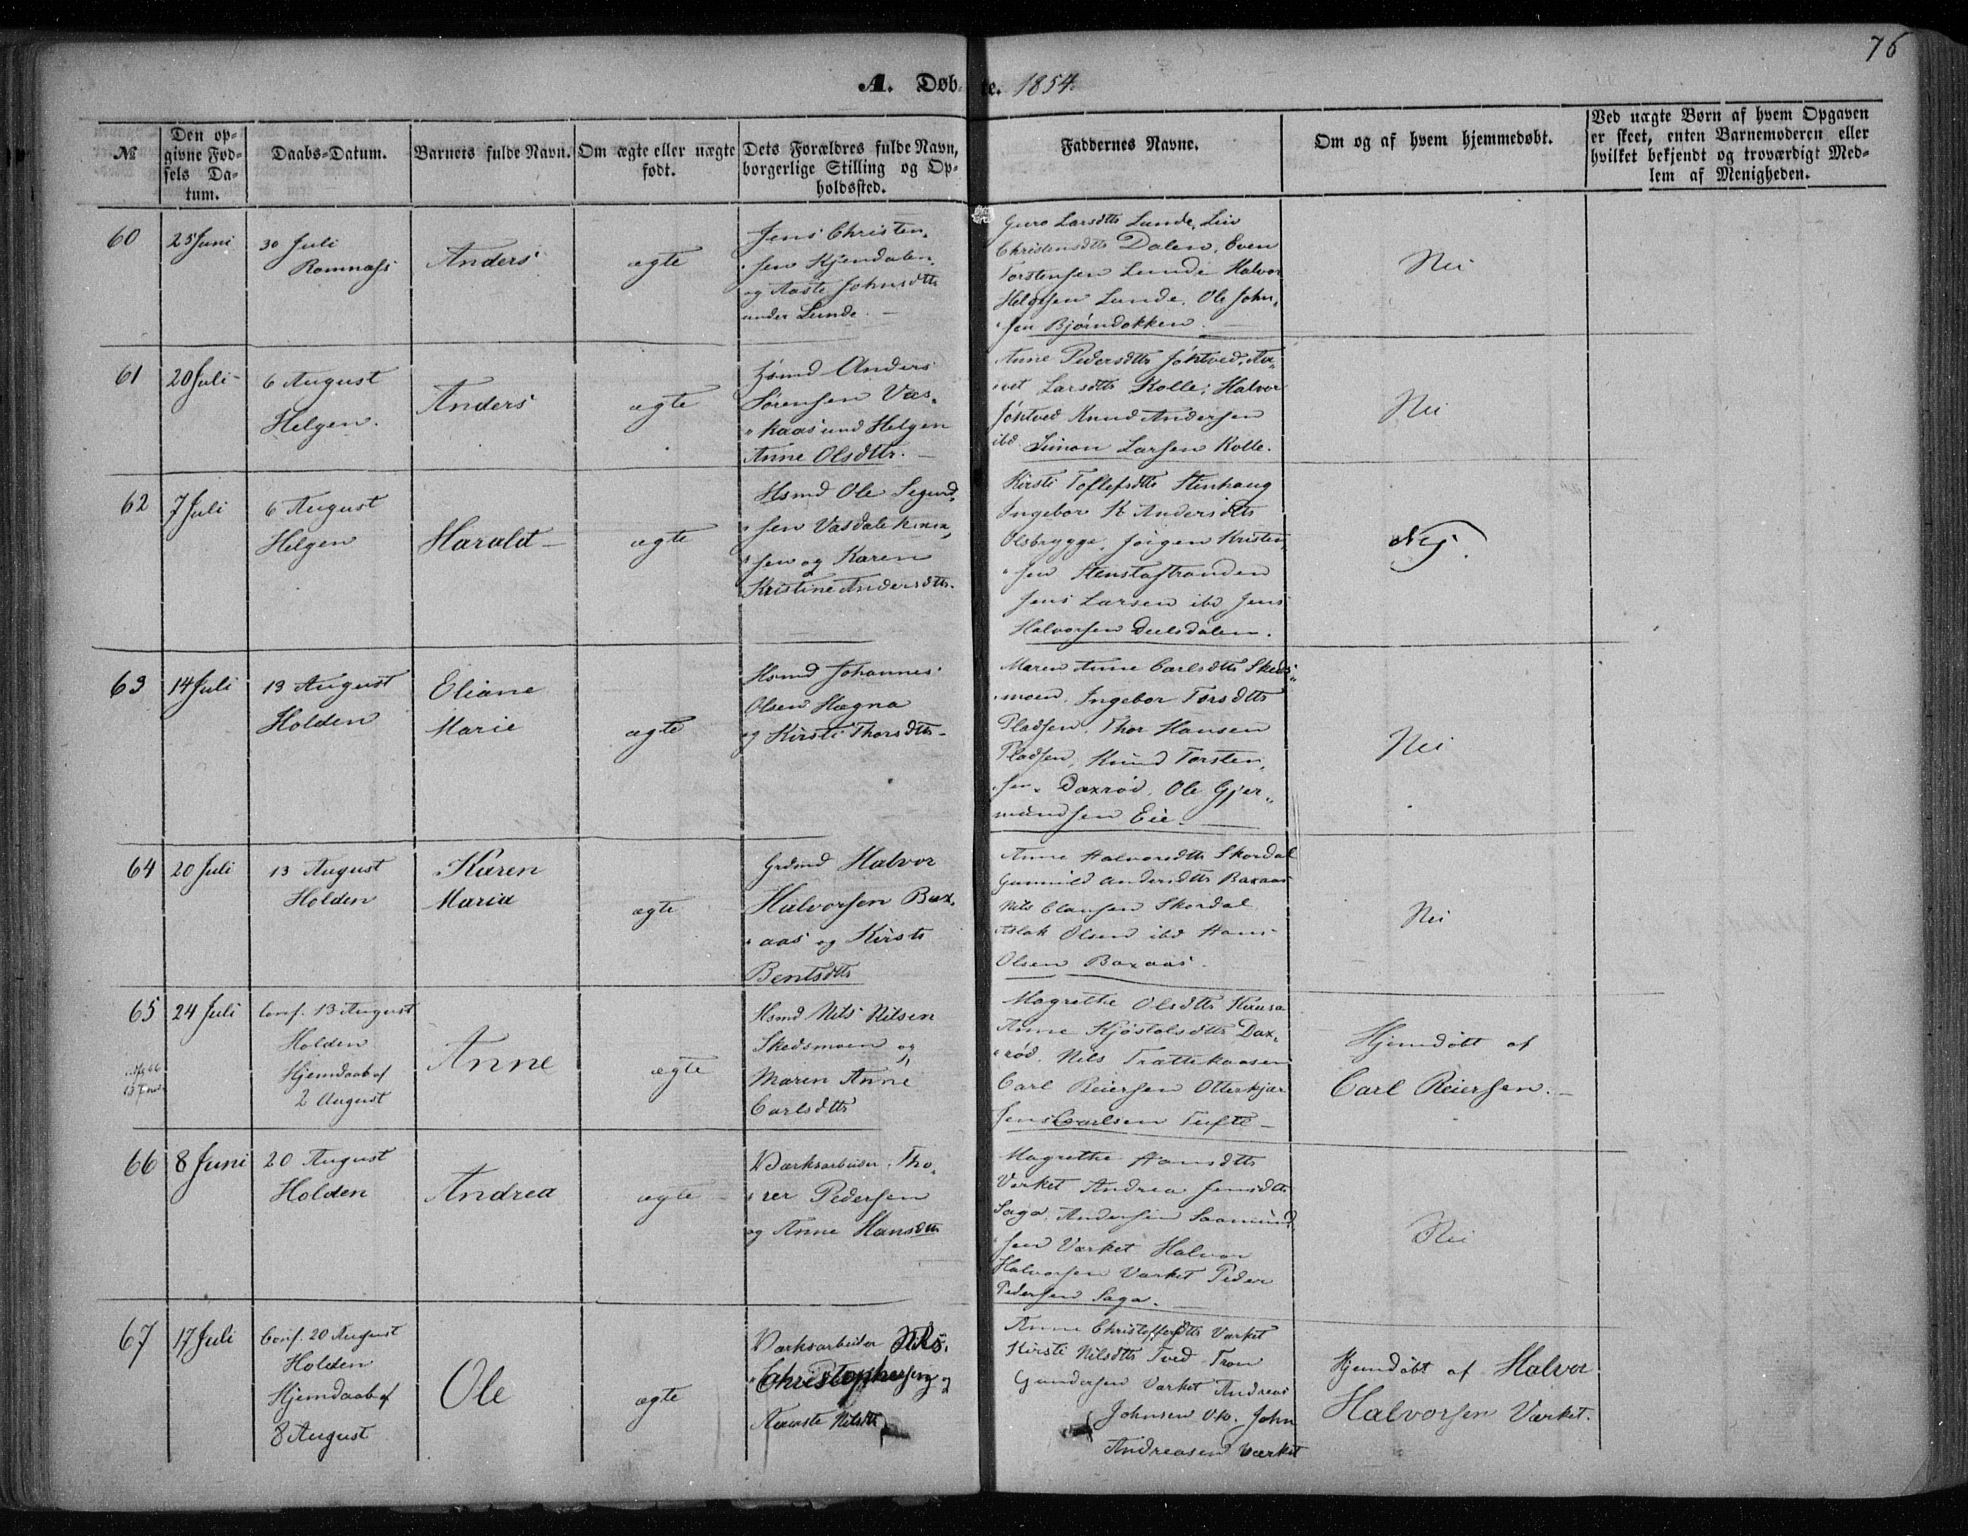 76
A. Døbte. 1854.
№
Den opgivne Fødsels Datum.
Daabs-Datum.
Barnets fulde Navn.
Om ægte eller uægte født.
Dets Forældres fulde Navn, borgerlige Stilling og Opholdssted.
Faddernes Navne.
Om og af hvem hjemmedøbt.
Ved uægte Børn af hvem Opgaven er skeet, enten Barnemoderen eller hvilket bekjendt og troværdigt Medlem af Menigheden.
60
25 Juni
30 Juli
Romnæss
Anders
ægte
Jens Christen-
sen Kjendalen
og Aaste Johnsdttr
under Lunde.
Guro Larsdttr Lunde, Liv
Christensdttr Dalen, Even
Torstensen Lunde Halvor
Helgesen Lunde. Ole John-
sen Bjørndokken.
Nei
61
20 Juli
6 August
Helgen.
Anders
ægte
Hsmd Anders
Sørensen Vas-
kaas und Helgen
Anne Olsdttr.
Anne Pedersdttr Jøntved,
Larsdttr Kolle, Halvor
Jøntved Knud Andersen
ibd. Simon Larsen Kolle.
Nei
62
7 Juli
6 August
Helgen
Harald
ægte
Hsmd Ole Sigurd-
sen Vasdalekinen
og Karen
Kristine Andersdttr.
Kirsti Toflefsdttr Stenhaug
Ingebor K Andersdttr
Olsbrygge, Jørgen Kristen-
sen Stenstastranden
Jens Larsen ibd Jens
Halvorsen Deelsdalen.
Nej.
63
14 Juli
13 August
Holden
Eliane
Marie
ægte
Hsmd Johannes
Olsen Hægna
og Kirsti Thorsdttr
Maren Anne Carlsdttr Skeds-
moen. Ingebor Torsdttr
Pladsen. Thor Hansen
Pladsen, Knud Torsten-
sen Daxrød, Ole Gjer-
mundsen Eie.
Nei
64
20 Juli
13 August
Holden
Karen
Maria
ægte
Grdmd Halvor
Halvorsen Bax-
aas og Kirsti
Bentsdttr
Anne Halvorsdttr Skordal
Gunnild Andersdttr Baxaas
Nils Clausen Skordal
Aslak Olsen ibd Hans
Olsen Baxaas.
Nei
65
24 Juli
Conf. 13 August
Holden
Hjemdaab af
2 August
Anne
ægte
Hsmd Nils Nilsen
Skedsmoen og
Maren Anne
Carlsdttr
Magrethe Olsdttr Kaasa
Anne Kjøstolsdttr Dax-
rød. Nils Trattekaasen
Carl Reiersen Otterkjær
Jens Carlsen Tufte
Hjemdøbt af
Carl Reiersen.
66
8 Juni
20 August
Holden
Andrea
ægte
Værksarbeider Tho-
rer Pedersen
og Anne Hansdttr
Magrethe Hansdttr
Værket Andrea Jensdttr
Saga. Andersen Saamund-
sen Værket Halvor
Halvorsen Værket Peder
Pedersen Saga.
Nei
67
17 Juli
Conf. 20 August
Holden
Hjemdaab af
8 August
Ole
ægte
Værksarbeider Nils
Christophersen og
Nilsdttr
Anne Christoffersdttr Værket
Kirsti Nilsdttr Tved Tron
Gundersen Værket Andreas
Johnsen do. John
Andreasen Værket
Hjemdøbt af Halvor
Halvorsen Værket.